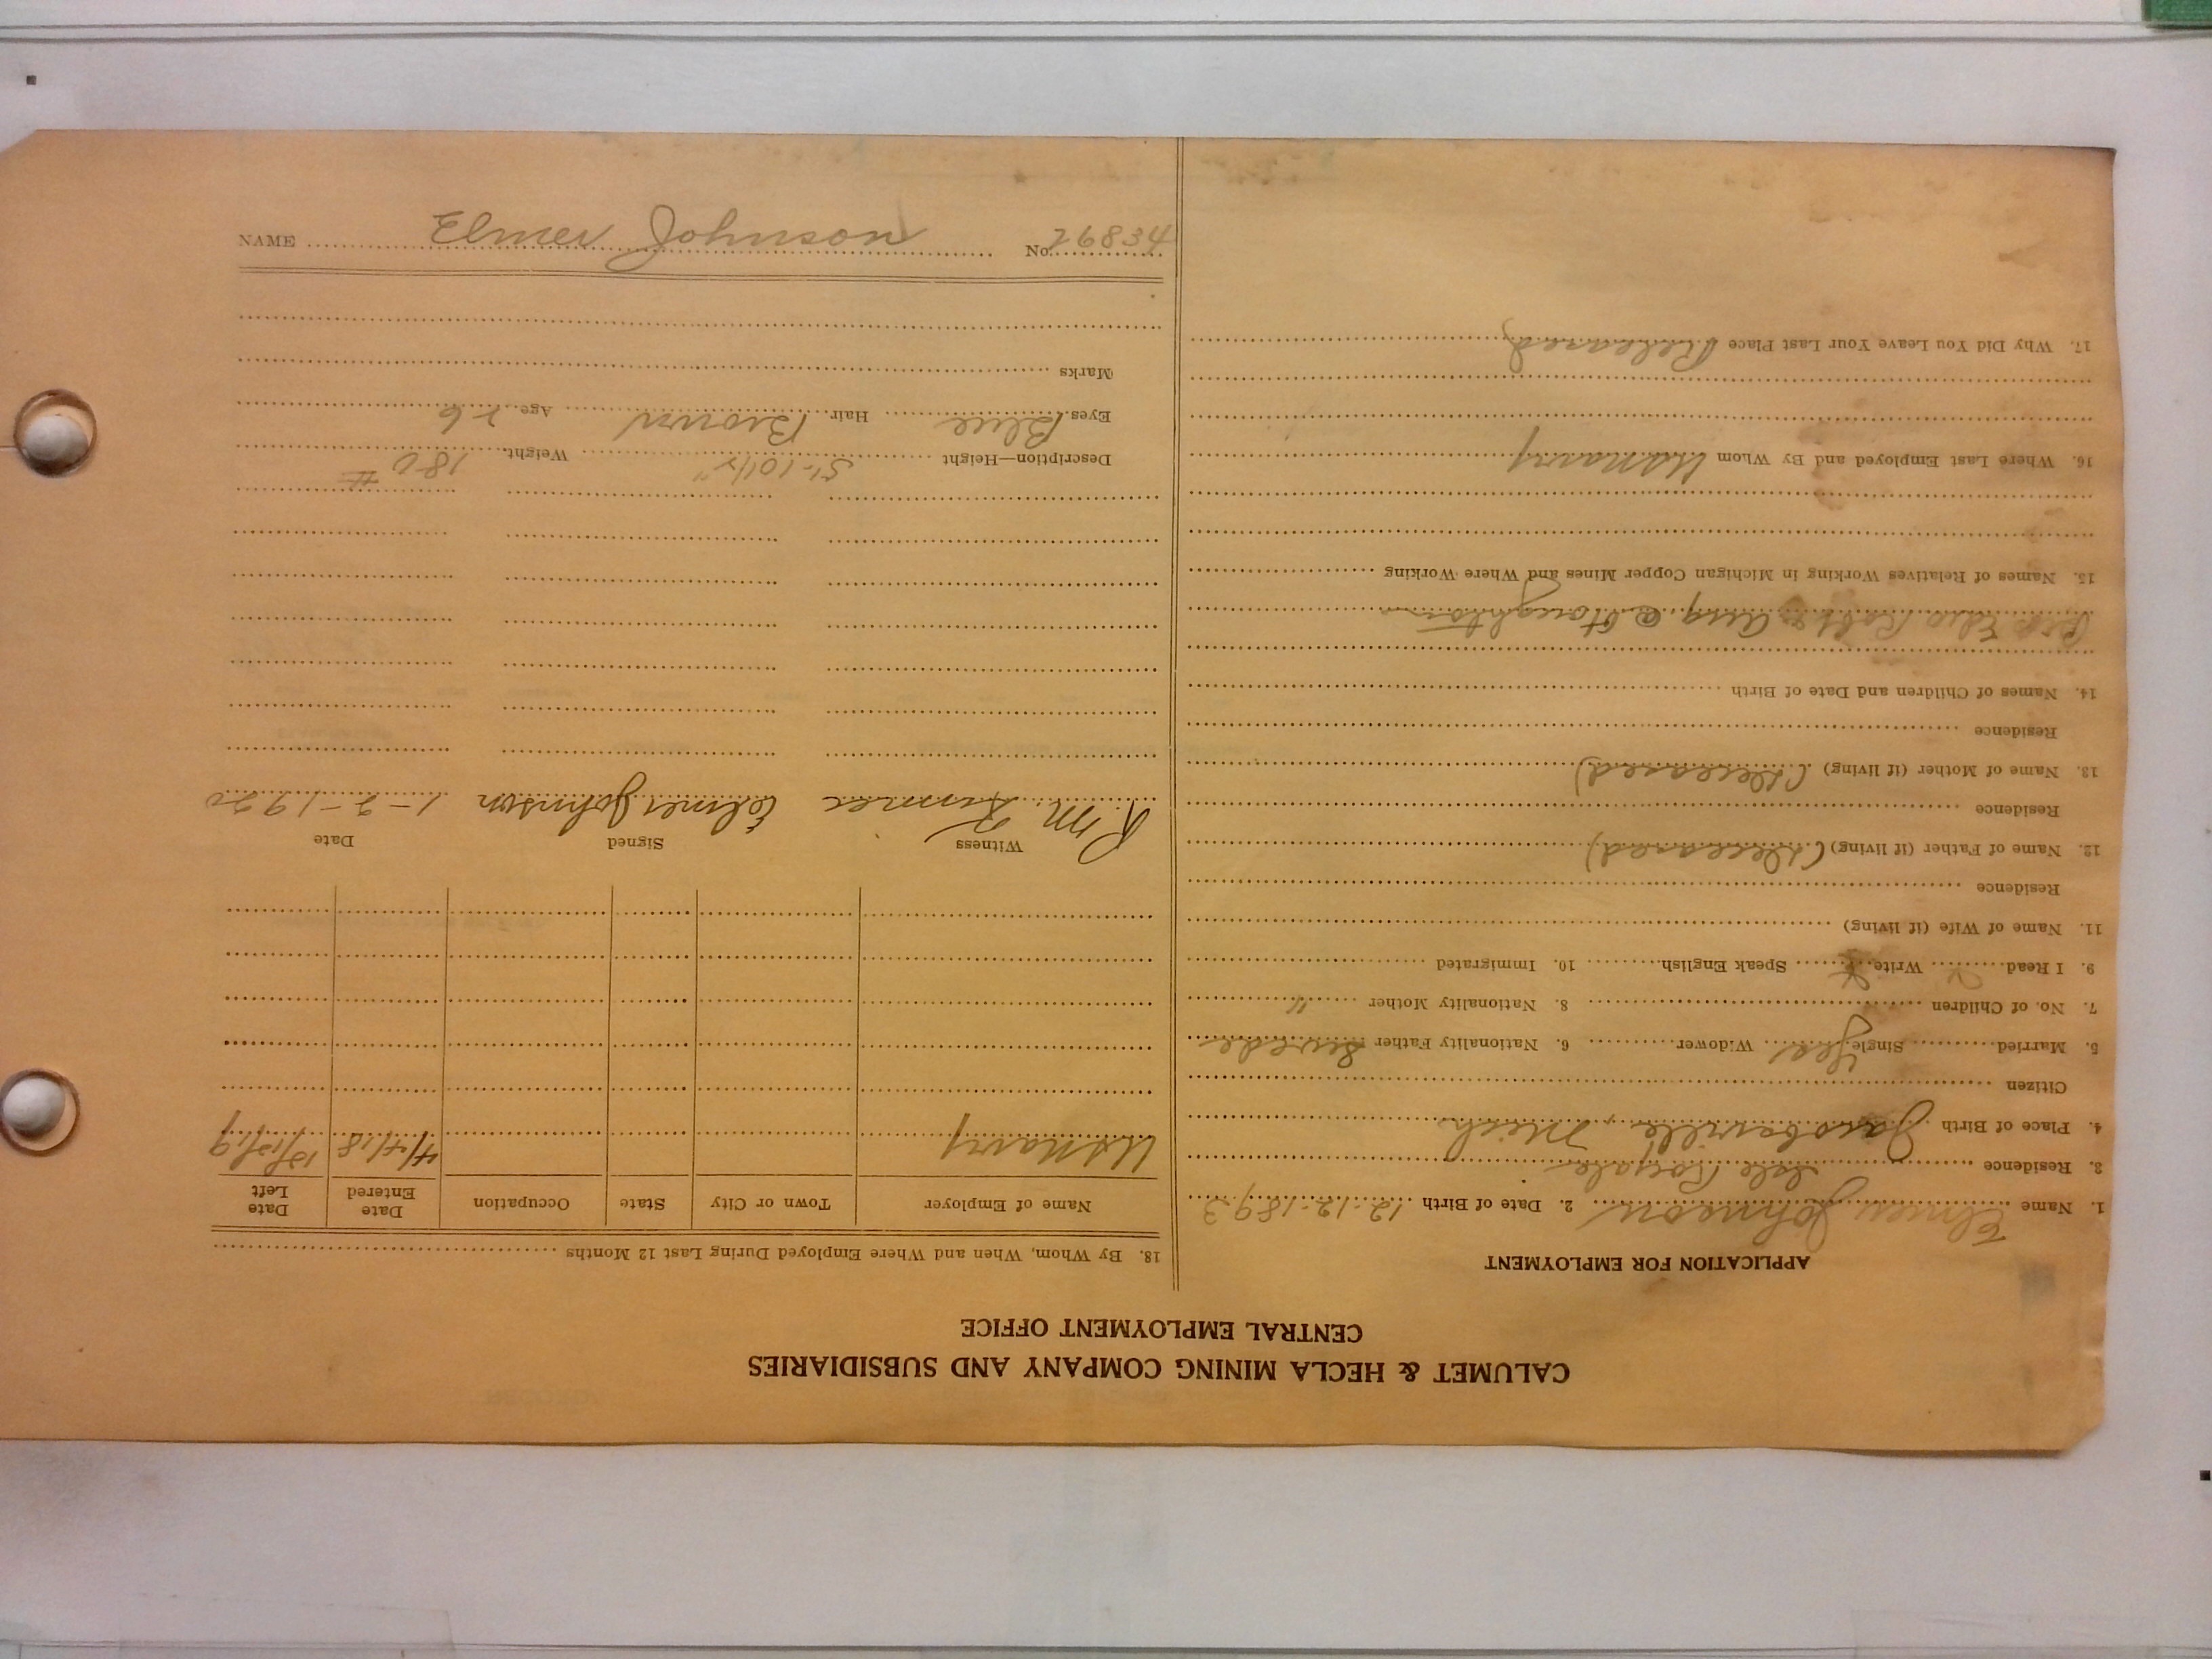 CALUMET & HECLA MINING COMPANY AND SUBSIDIARIES
CENTRAL EMPLOYMENT OFFICE
APPLICATION FOR EMPLOYMENT
1. Name Elmer Johnson 2. Date of Birth 12-12-1893
3. Residence Isle Royale
4. Place of Birth Jacobsville, Mich
Citizen
5. Married Single Yes Widower 6. Nationality Father Swede
7. No. of Children 8. Nationality Mother "
9. I Read Write Speak English 10. Immigrated
11. Name of Wife (if living)
Residence
12. Name of Father (if living) (Deceased)
Residence
13. Name of Mother (if living) (Deceased)
Residence
14. Names of Children and Date of Birth
Robt & Aug. @ Houghton
15. Names of Relatives Working in Michigan Copper Mines and Where Working
16. Where Last Employed and By Whom US Navy
17. Why Did You Leave Your Last Place Released
18. By Whom, When and Where Employed During Last 12 Months
Name of Employer Town or City State Occupation Date Entered Date Left
US Navy 4/4/18 12/12/19
Witness Signed Date
R. M. Elmer Johnson 1-2-1920
Description—Height 5'-10 1/2" Weight 180 #
Eyes Blue Hair Brown Age 26
Marks
NAME Elmer Johnson No. 26834